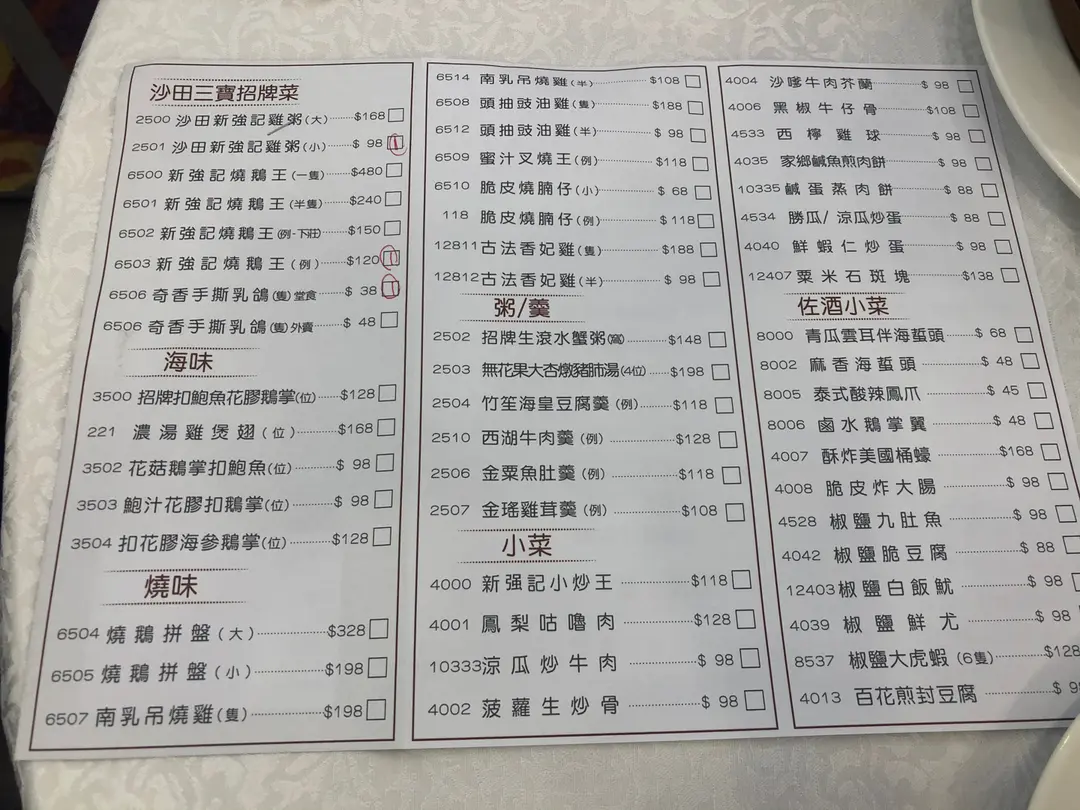 沙田三寶招牌菜
2500 沙田新強記雞粥(大)······$168
2501 沙田新強記雞粥(小)······$ 98
6500 新強記燒鵝王(一隻)······$480
6501 新強記燒鵝王(半隻)······$240
6502 新強記燒鵝王(例-下莊)······$150
6503 新強記燒鵝王(例)······$120
6506 奇香手撕乳鴿(隻)堂食······$ 38
6506 奇香手撕乳鴿(隻)外賣······$ 48
海味
3500 招牌扣鮑魚花膠鵝掌(位)······$128
221 濃湯雞煲翅(位)······$168
3502 花菇鵝掌扣鮑魚(位)······$ 98
3503 鮑汁花膠扣鵝掌(位)······$ 98
3504 扣花膠海參鵝掌(位)······$128
燒味
6504 燒鵝拼盤(大)······$328
6505 燒鵝拼盤(小)······$198
6507 南乳吊燒雞(隻)······$198
6514 南乳吊燒雞(半)······$108
6508 頭抽豉油雞(隻)······$188
6512 頭抽豉油雞(半)······$ 98
6509 蜜汁叉燒王(例)······$118
6510 脆皮燒腩仔(小)······$ 68
118 脆皮燒腩仔(例)······$118
12811 古法香妃雞(隻)······$188
12812 古法香妃雞(半)······$ 98
粥/羹
2502 招牌生滾水蟹粥(窩)······$148
2503 無花果大杏燉豬肺湯(4位)······$198
2504 竹笙海皇豆腐羹(例)······$118
2510 西湖牛肉羹(例)······$128
2506 金粟魚肚羹(例)······$118
2507 金瑤雞茸羹(例)······$108
小菜
4000 新强記小炒王······$118
4001 鳳梨咕嚕肉······$128
10333 涼瓜炒牛肉······$ 98
4002 菠蘿生炒骨······$ 98
4004 沙嗲牛肉芥蘭······$ 98
4006 黑椒牛仔骨······$108
4533 西檸雞球······$ 98
4035 家鄉鹹魚煎肉餅······$ 98
10335 鹹蛋蒸肉餅······$ 88
4534 勝瓜/涼瓜炒蛋······$ 88
4040 鮮蝦仁炒蛋······$ 98
12407 粟米石斑塊······$138
佐酒小菜
8000 青瓜雲耳伴海蜇頭······$ 68
8002 麻香海蜇頭······$ 48
8005 泰式酸辣鳳爪······$ 45
8006 鹵水鵝掌翼······$ 48
4007 酥炸美國桶蠔······$168
4008 脆皮炸大腸······$ 98
4528 椒鹽九肚魚······$ 98
4042 椒鹽脆豆腐······$ 88
12403 椒鹽白飯魷······$ 98
4039 椒鹽鮮尤······$ 98
8537 椒鹽大虎蝦(6隻)······$128
4013 百花煎封豆腐······$